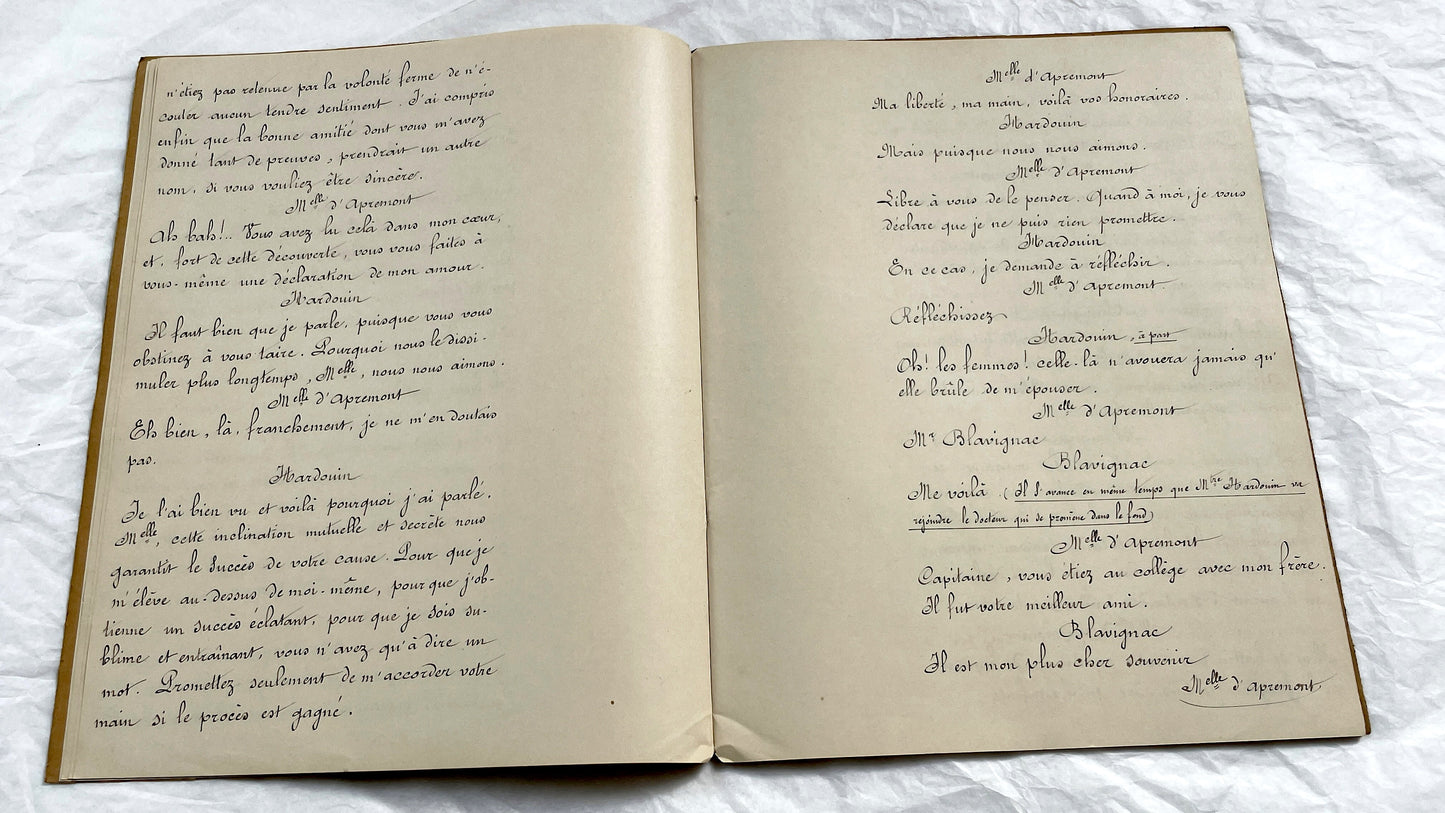 n'étiez pas retenue par la volonté ferme de n'é-
couter aucun tendre sentiment. J'ai compris
enfin que la bonne amitié dont vous m'avez
donné tant de preuves, prendrait un autre
nom, si vous vouliez être sincère.
Melle d'Apremont
Ah bah!.. Vous avez lu celà dans mon cœur,
et, fort de cette découverte, vous vous faites à
vous-même une déclaration de mon amour.
Hardouin
Il faut bien que je parle, puisque vous vous
obstinez à vous taire. Pourquoi nous le dissi-
muler plus longtemps, Melle, nous nous aimons.
Melle d'Apremont
Eh bien, là, franchement, je ne m'en doutais
pas.
Hardouin
Je l'ai bien vu et voilà pourquoi j'ai parlé.
Melle, cette inclination mutuelle et secrète nous
garantit le succès de votre cause. Pour que je
m'élève au-dessus de moi-même, pour que j'ob-
tienne un succès éclatant, pour que je sois su-
blime et entraînant, vous n'avez qu'à dire un
mot. Promettez seulement de m'accorder votre
main si le procès est gagné.
Melle d'Apremont
Ma liberté, ma main, voilà vos honoraires.
Hardouin
Mais puisque nous nous aimons.
Melle d'Apremont
Libre à vous de le penser. Quand à moi, je vous
déclare que je ne puis rien promettre.
Hardouin
En ce cas, je demande à réfléchir.
Melle d'Apremont.
Réfléchissez
Hardouin, à part
Oh! les femmes! celle-là n'avouera jamais qu'
elle brûle de m'épouser.
Melle d'Apremont
Mr Blavignac
Blavignac
Me voilà. (Il s'avance en même temps que Mtre Hardouin va
rejoindre le docteur qui se promène dans le fond)
Melle d'Apremont
Capitaine, vous étiez au collège avec mon frère.
Il fut votre meilleur ami.
Blavignac
Il est mon plus cher souvenir
Melle d'Apremont